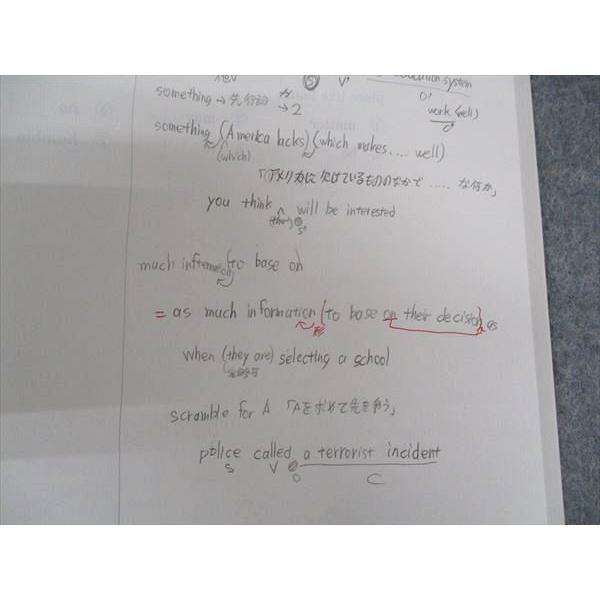 S V' education system
something → 先行詞 が → 2 O' work (well)
something (America lacks) (which makes.... well)
(which)
「アメリカに欠けているもののなかで ..... な何か」
you think will be interested
(that) S'
much information (to base on
= as much information (to base on their decision) as
形
when (they are) selecting a school
省略可
scramble for A 「Aを求めて先を争う」
police called a terrorist incident
S V O C